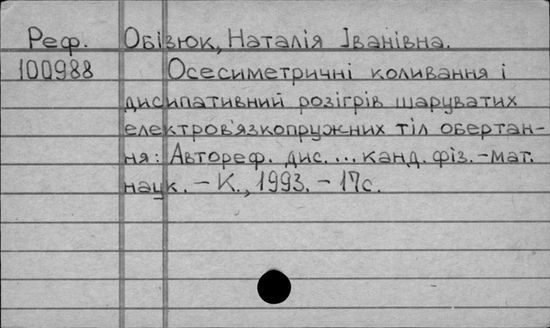 Реф. Обізюк, Наталія Іванівна.
100988 Осесиметричні коливання і
дисипативний розігрів шаруватих
електров'язкопружних тіл обертан-
ня: Автореф. дис. ... канд. фіз.-мат.
наук. - К., 1993. - 17с.